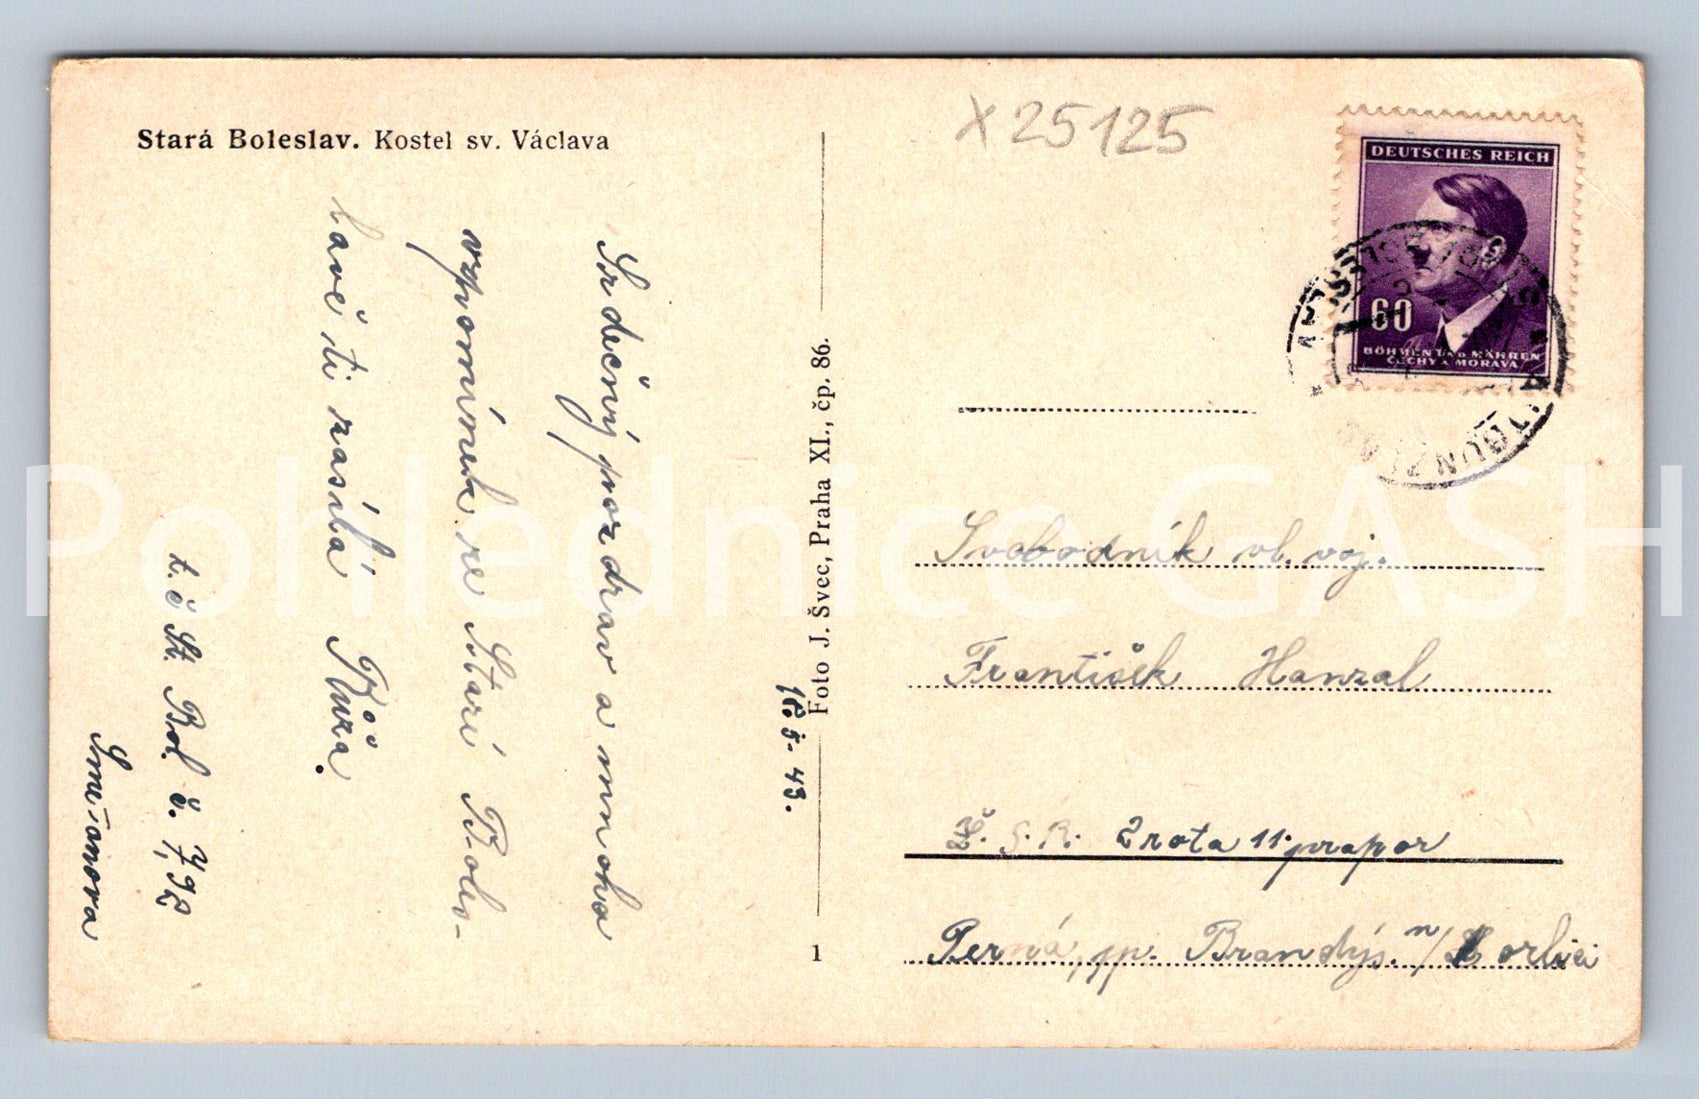 Stará Boleslav. Kostel sv. Václava
X 25125
DEUTSCHES REICH
60
BÖHMEN UND MÄHREN
ČECHY A MORAVA
16. 5. 43.
Srdečný pozdrav a mnoho
vzpomínek ze Staré Boles-
lavě ti zasílá Růža.
Foto J. Švec, Praha XI., čp. 86.
1
Svobodník vl. voj.
František Hanzal
2 rota 11. prapor
Perná, pp. Brandýs n/ orlici
Pohlednice GASH